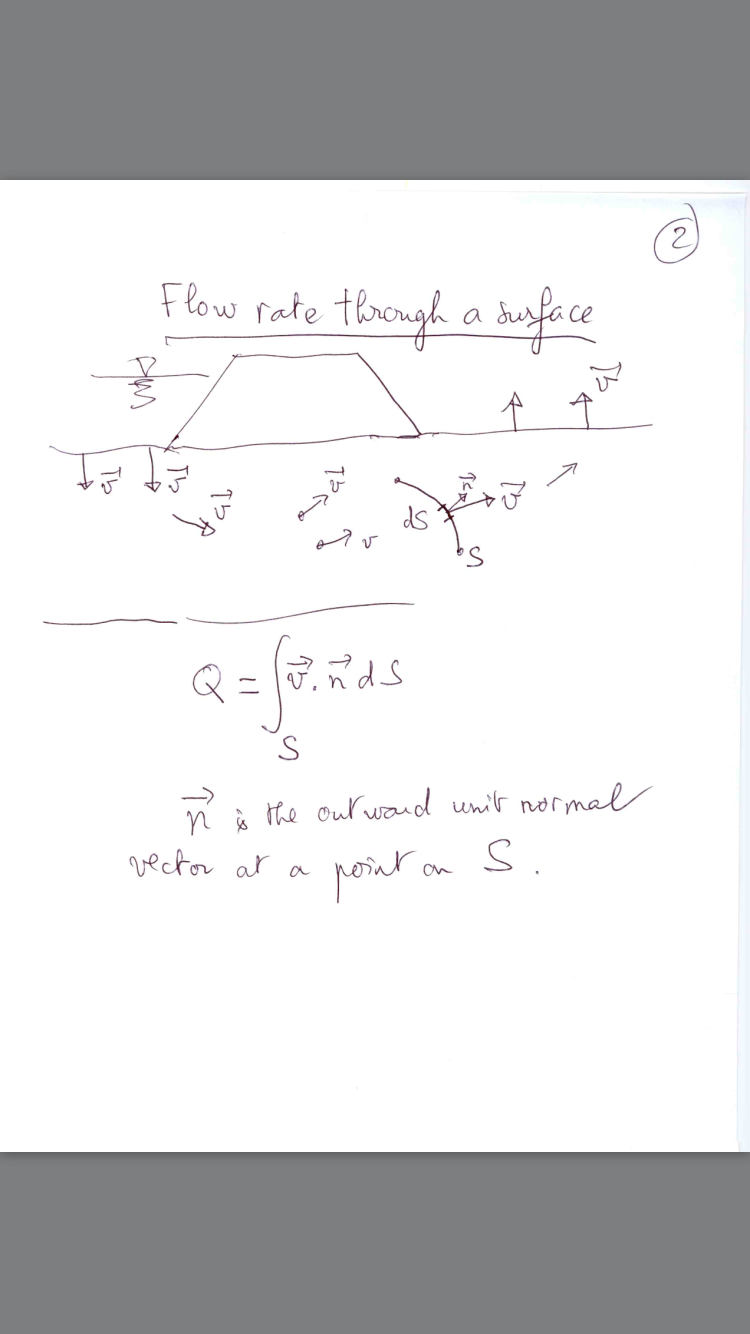 2
Flow rate through a surface
v⃗
v⃗ v⃗ v⃗ v⃗ n⃗ v⃗
dS
v
S
Q = ∫ v⃗ . n⃗ dS
S
n⃗ is the outward unit normal
vector at a point on S .